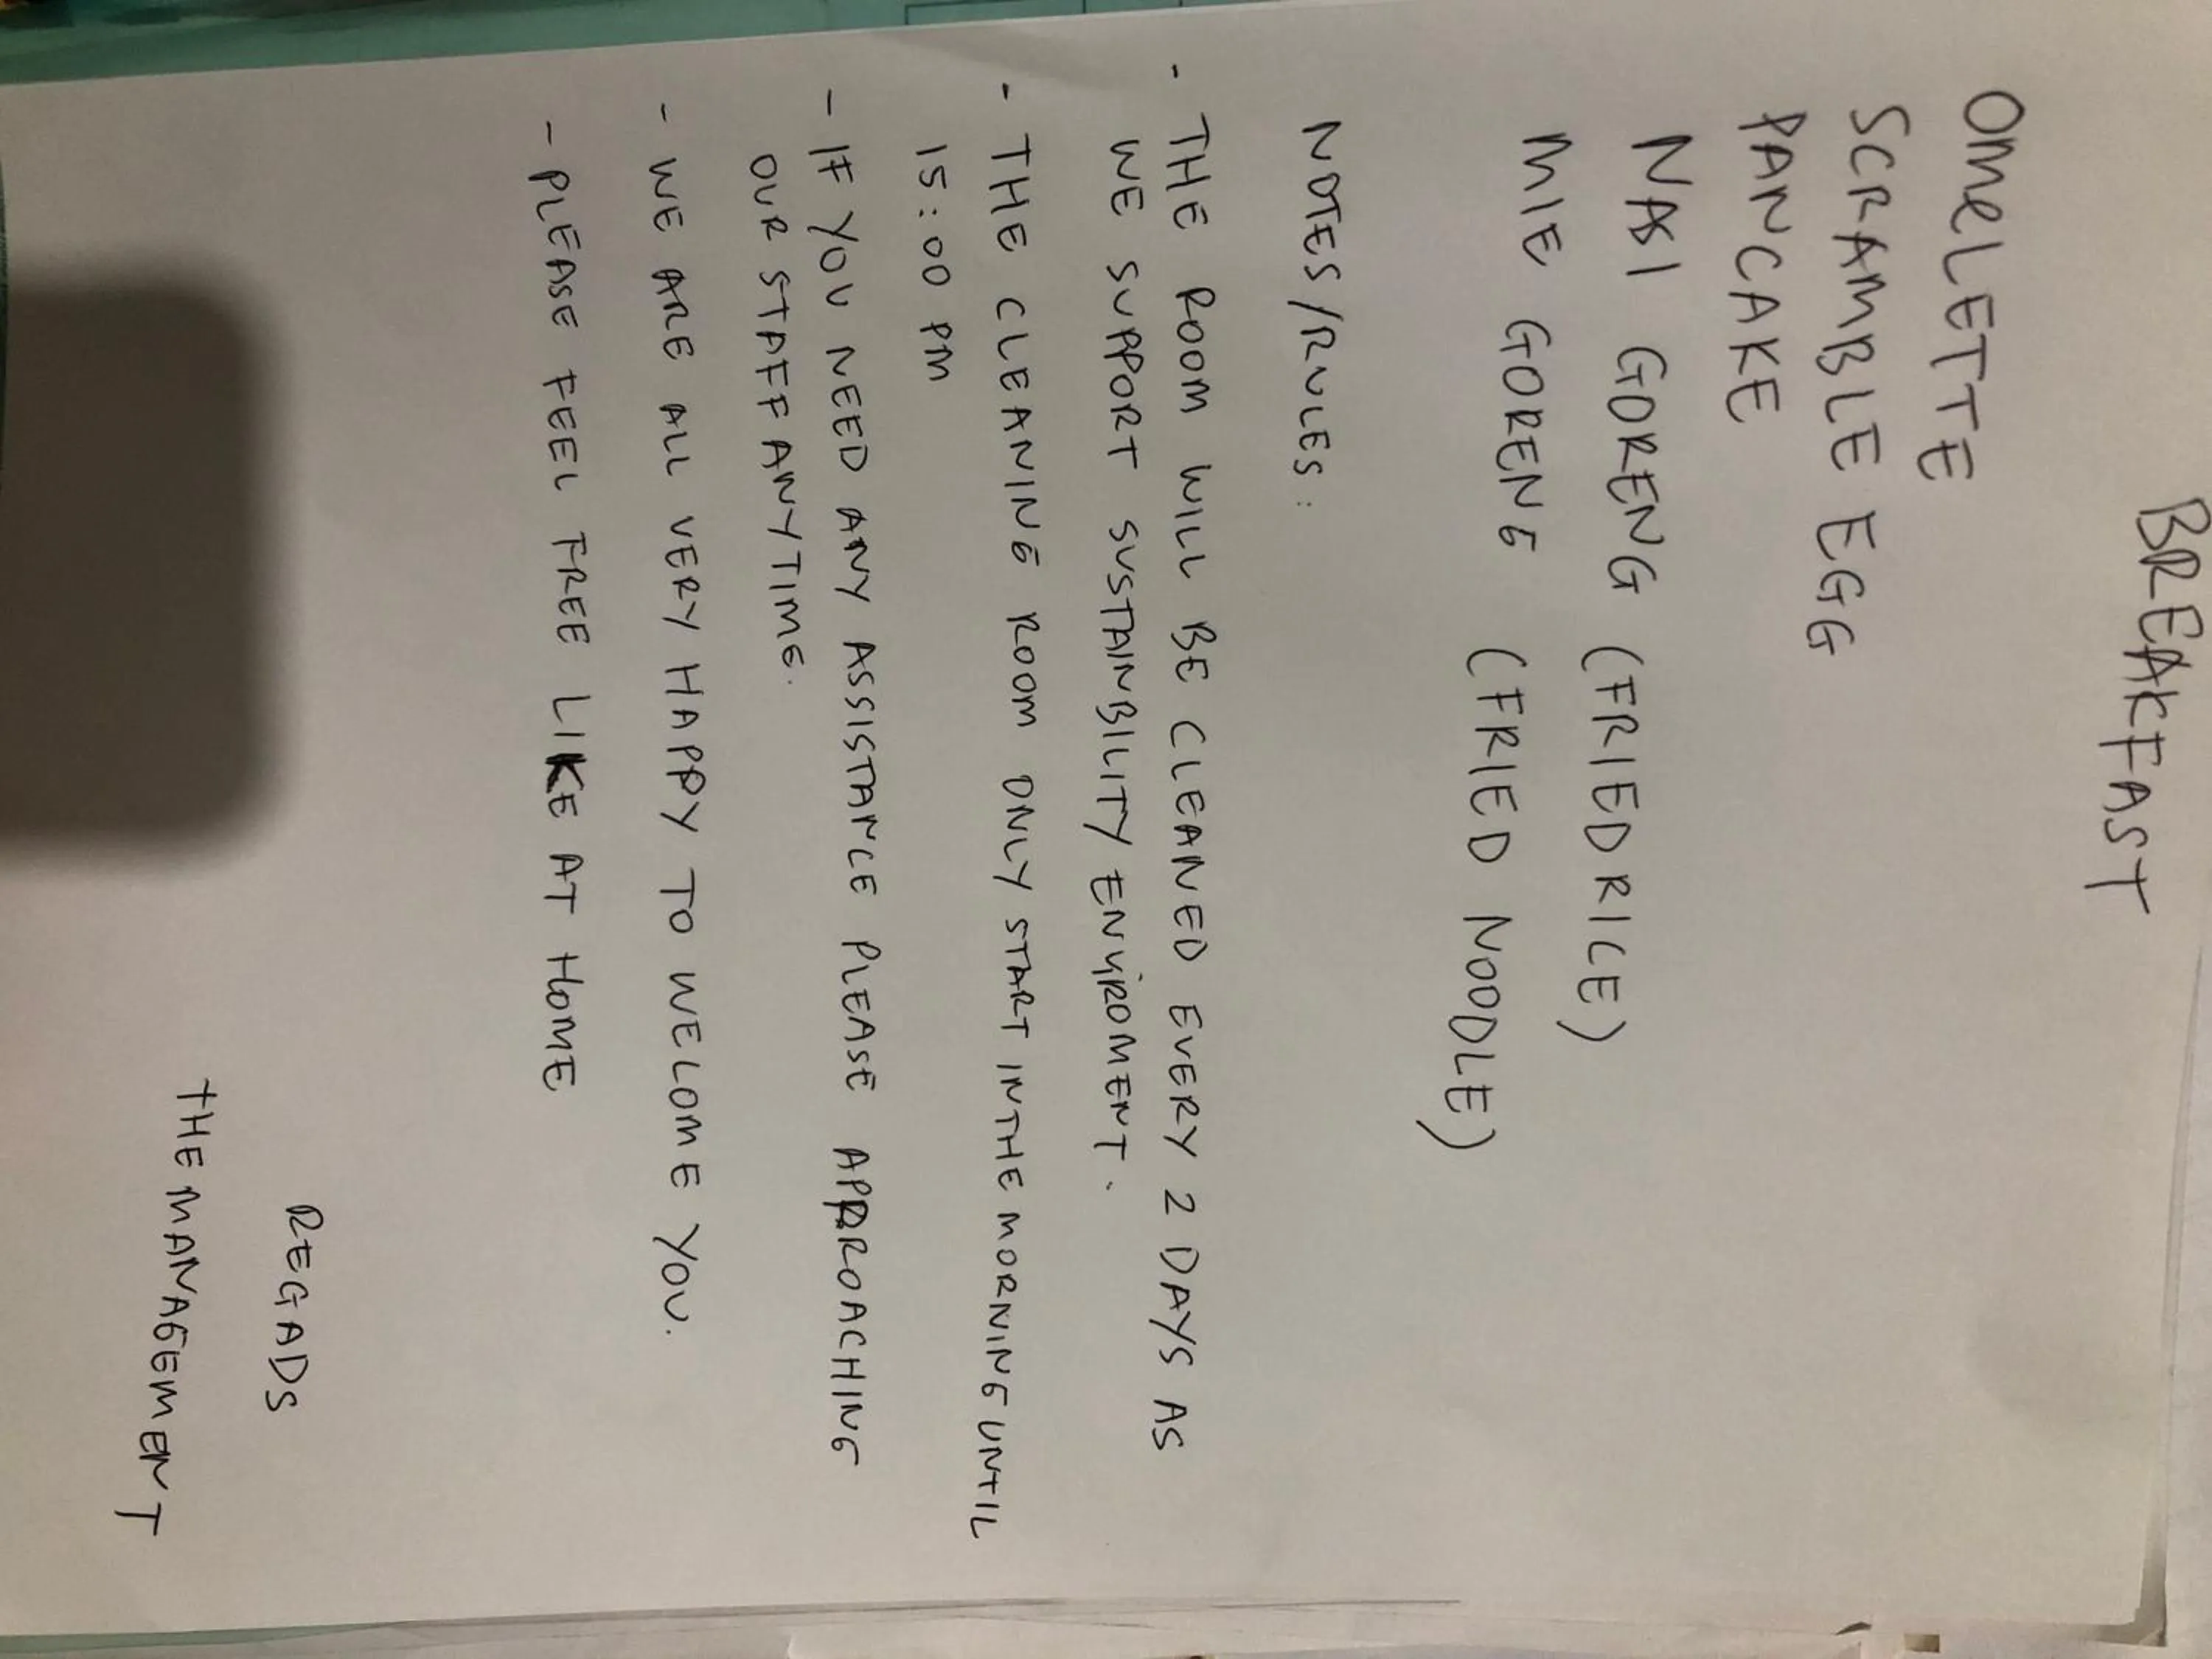 BREAKFAST
OMELETTE
SCRAMBLE EGG
PANCAKE
NASI GORENG (FRIED RICE)
MIE GORENG (FRIED NOODLE)
NOTES/RULES:
- THE ROOM WILL BE CLEANED EVERY 2 DAYS AS
WE SUPPORT SUSTAINBILITY ENVIROMENT.
- THE CLEANING ROOM ONLY START INTHE MORNING UNTIL
15:00 PM
- IF YOU NEED ANY ASSISTANCE PLEASE APPROACHING
OUR STAFF ANYTIME.
- WE ARE ALL VERY HAPPY TO WELOME YOU.
- PLEASE FEEL FREE LIKE AT HOME
REGADS
THE MANAGEMENT